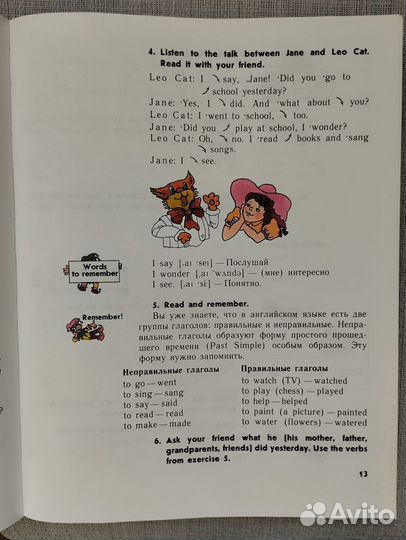 4. Listen to the talk between Jane and Leo Cat.
Read it with your friend.
Leo Cat: I ↘ say, Jane! 'Did you 'go to
⤴ school yesterday?
Jane: 'Yes, I ↘ did. And 'what about ↘ you?
Leo Cat: I 'went to 'school, ↘ too.
Jane: 'Did you ⤴ play at school, I 'wonder?
Leo Cat: Oh, ↘ no. I 'read ⤴ books and 'sang
↘ songs.
Jane: I ↘ see.
Words
to remember
I say [ˌaɪ 'seɪ] — Послушай
I wonder [ˌaɪ 'wʌndə] — (мне) интересно
I see. [ˌaɪ 'si:] — Понятно.
Remember!
5. Read and remember.
Вы уже знаете, что в английском языке есть две
группы глаголов: правильные и неправильные. Непра-
вильные глаголы образуют форму простого прошед-
шего времени (Past Simple) особым образом. Эту
форму нужно запомнить.
Неправильные глаголы Правильные глаголы
to go — went to watch (TV) — watched
to sing — sang to play (chess) — played
to say — said to help — helped
to read — read to paint (a picture) — painted
to make — made to water (flowers) — watered
6. Ask your friend what he (his mother, father,
grandparents, friends) did yesterday. Use the verbs
from exercise 5.
13
Avito